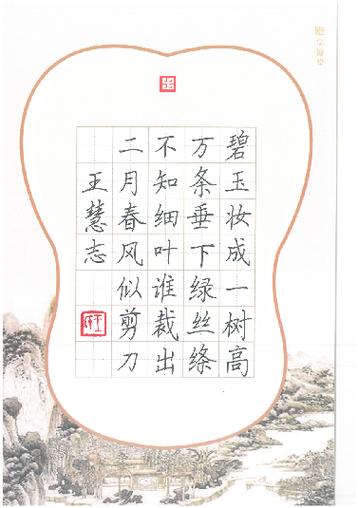 碧玉妆成一树高
万条垂下绿丝绦
不知细叶谁裁出
二月春风似剪刀
王慧志